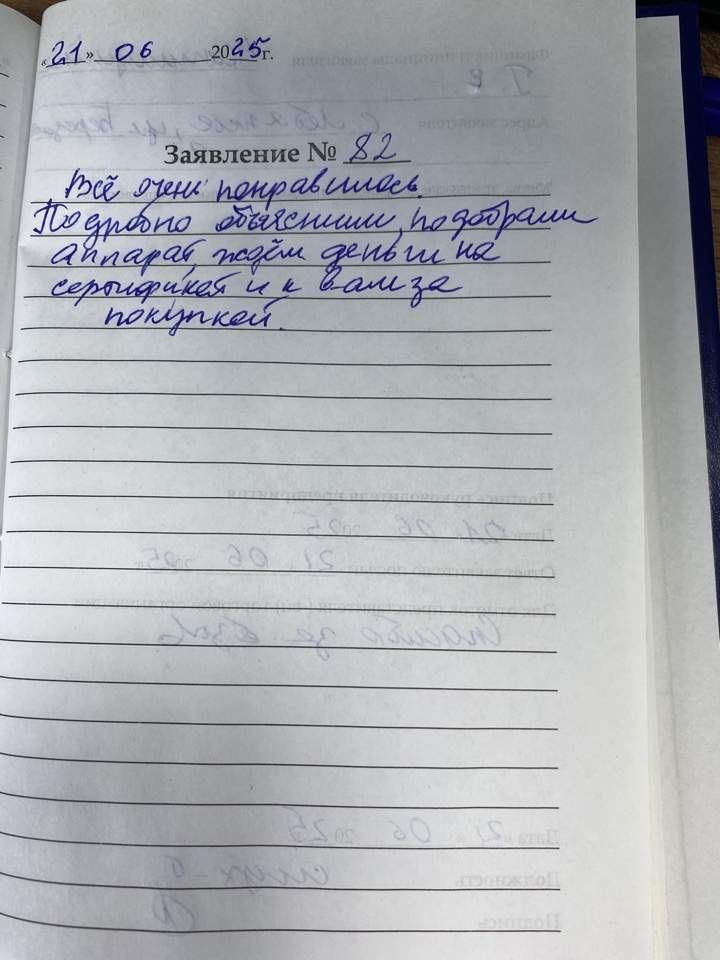 «21» 06 2025г.
Заявление № 82
Всё очень понравилось.
Подробно объяснили, подобрали
аппарат, ждём деньги на
сертификат и к вам за
покупкой.